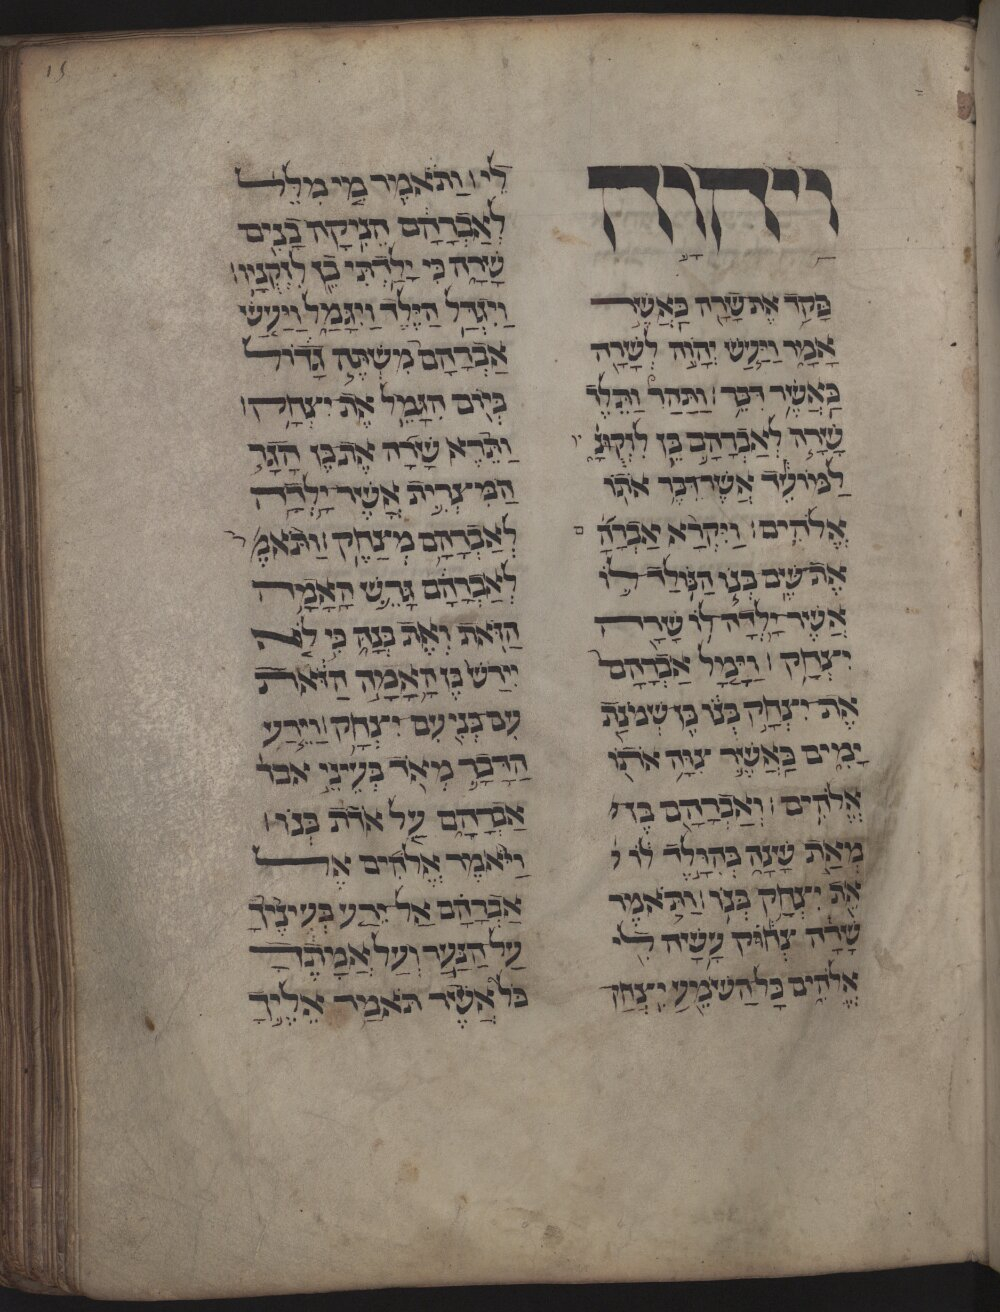 15
וַיהוָה
פָּקַד אֶת שָׂרָה כַּאֲשֶׁר
אָמָר וַיַּעַשׂ יְהוָה לְשָׂרָה
כַּאֲשֶׁר דִּבֵּר׃ וַתַּהַר וַתֵּלֶד
שָׂרָה לְאַבְרָהָם בֵּן לִזְקֻנָיו
לַמּוֹעֵד אֲשֶׁר דִּבֶּר אֹתוֹ
אֱלֹהִים׃ וַיִּקְרָא אַבְרָהָם
אֶת שֶׁם בְּנוֹ הַנּוֹלַד לוֹ
אֲשֶׁר יָלְדָה לּוֹ שָׂרָה
יִצְחָק׃ וַיָּמָל אַבְרָהָם
אֶת יִצְחָק בְּנוֹ בֶּן שְׁמֹנַת
יָמִים כַּאֲשֶׁר צִוָּה אֹתוֹ
אֱלֹהִים׃ וְאַבְרָהָם בֶּן
מְאַת שָׁנָה בְּהִוָּלֶד לוֹ
אֵת יִצְחָק בְּנוֹ׃ וַתֹּאמֶר
שָׂרָה צְחֹק עָשָׂה לִי
אֱלֹהִים כָּל הַשֹּׁמֵעַ יִצְחַק
לִי׃ וַתֹּאמֶר מִי מִלֵּל
לְאַבְרָהָם הֵנִיקָה בָנִים
שָׂרָה כִּי יָלַדְתִּי בֵן לִזְקֻנָיו׃
וַיִּגְדַּל הַיֶּלֶד וַיִּגָּמַל וַיַּעַשׂ
אַבְרָהָם מִשְׁתֶּה גָדוֹל
בְּיוֹם הִגָּמֵל אֶת יִצְחָק׃
וַתֵּרֶא שָׂרָה אֶת בֶּן הָגָר
הַמִּצְרִית אֲשֶׁר יָלְדָה
לְאַבְרָהָם מְצַחֵק׃ וַתֹּאמֶר
לְאַבְרָהָם גָּרֵשׁ הָאָמָה
הַזֹּאת וְאֶת בְּנָהּ כִּי לֹא
יִירַשׁ בֶּן הָאָמָה הַזֹּאת
עִם בְּנִי עִם יִצְחָק׃ וַיֵּרַע
הַדָּבָר מְאֹד בְּעֵינֵי
אַבְרָהָם עַל אֹדֹת בְּנוֹ׃
וַיֹּאמֶר אֱלֹהִים אֶל
אַבְרָהָם אַל יֵרַע בְּעֵינֶיךָ
עַל הַנַּעַר וְעַל אֲמָתֶךָ
כֹּל אֲשֶׁר תֹּאמַר אֵלֶיךָ